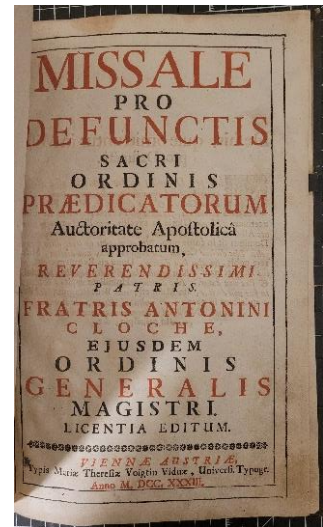 MISSALE
PRO
DEFUNCTIS
SACRI
ORDINIS
PRÆDICATORUM
Auctoritate Apoſtolicâ
approbatum,
REVERENDISSIMI
PATRIS
FRATRIS ANTONINI
CLOCHE,
EJUSDEM
ORDINIS
GENERALIS
MAGISTRI.
LICENTIA EDITUM.
VIENNÆ AUSTRIÆ,
Typis Mariæ Thereſiæ Voigtin Viduæ, Univerſ. Typogr.
Anno M. DCC. XXXIII.